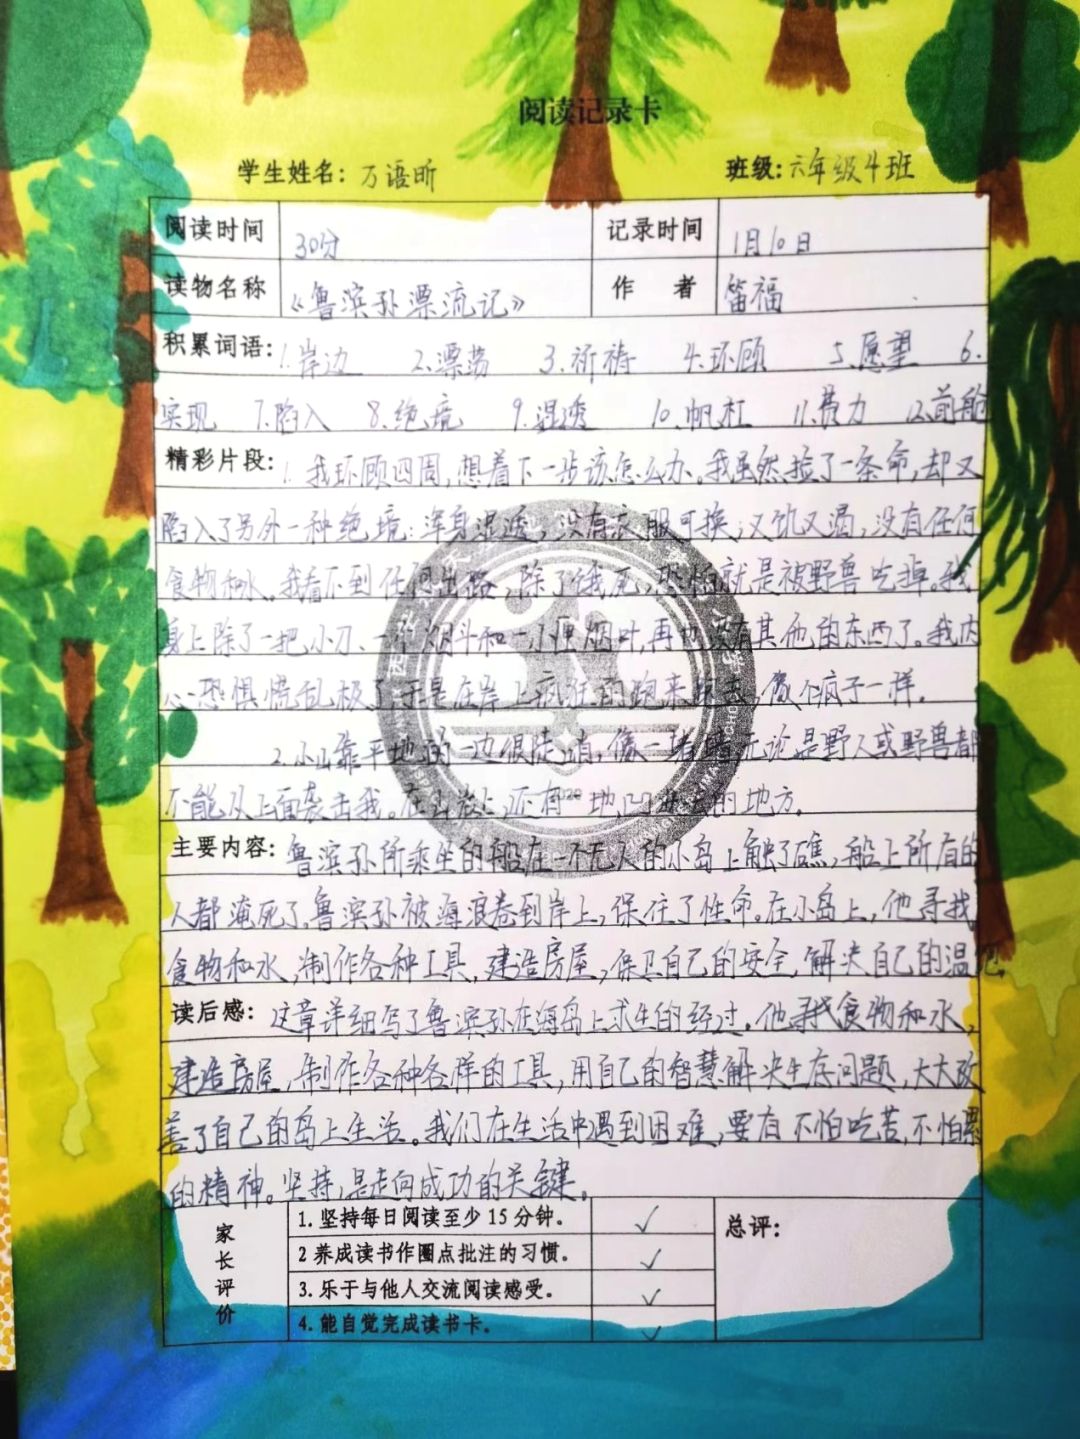 阅读记录卡
学生姓名：万语昕 班级：六年级4班
阅读时间 30分 记录时间 1月10日
读物名称 《鲁滨孙漂流记》 作 者 笛福
积累词语：1.岸边 2.漂荡 3.祈祷 4.环顾 5.愿望 6.
实现 7.陷入 8.绝境 9.湿透 10.帆杠 11.费力 12.前舱
精彩片段：1.我环顾四周,想着下一步该怎么办。我虽然捡了一条命,却又
陷入了另外一种绝境：浑身湿透,没有衣服可换;又饥又渴,没有任何
食物和水。我看不到任何出路,除了饿死,恐怕就是被野兽吃掉。我
身上除了一把小刀、一个烟斗和一小匣烟叶,再也没有其他的东西了。我内
心恐惧慌乱极了,于是在岸上疯狂的跑来跑去,像个疯子一样。
2.小山靠平地的一边很陡峭,像一堵墙,无论是野人或野兽都
不能从上面袭击我。在山岩上,还有一地凹进去的地方。
主要内容：鲁滨孙所乘坐的船在一个无人的小岛上触了礁,船上所有的
人都淹死了,鲁滨孙被海浪卷到岸上,保住了性命。在小岛上,他寻找
食物和水,制作各种工具,建造房屋,保卫自己的安全,解决自己的温饱。
读后感：这章详细写了鲁滨孙在海岛上求生的经过。他寻找食物和水,
建造房屋,制作各种各样的工具,用自己的智慧解决生存问题,大大改
善了自己的岛上生活。我们在生活中遇到困难,要有不怕吃苦,不怕累
的精神。坚持,是走向成功的关键。
家长评价 1.坚持每日阅读至少15分钟。 ✓ 总评：
2养成读书作圈点批注的习惯。 ✓
3.乐于与他人交流阅读感受。 ✓
4.能自觉完成读书卡。 ✓